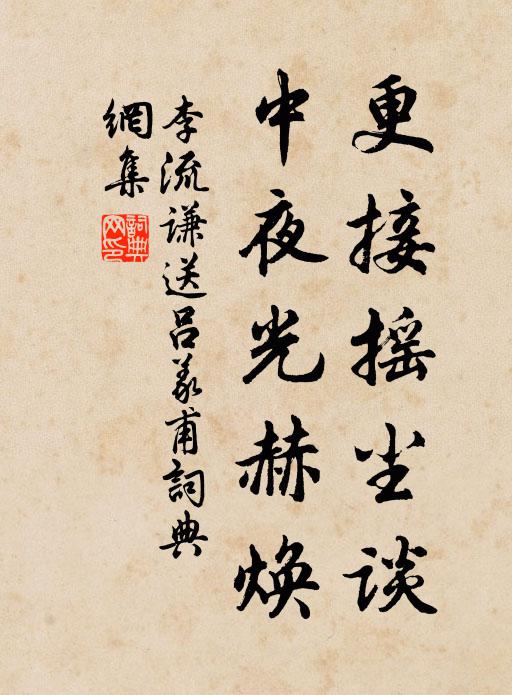 更接摇尘谈
中夜光赫焕
李流谦送吕义甫詞典
網集
詞典
网印